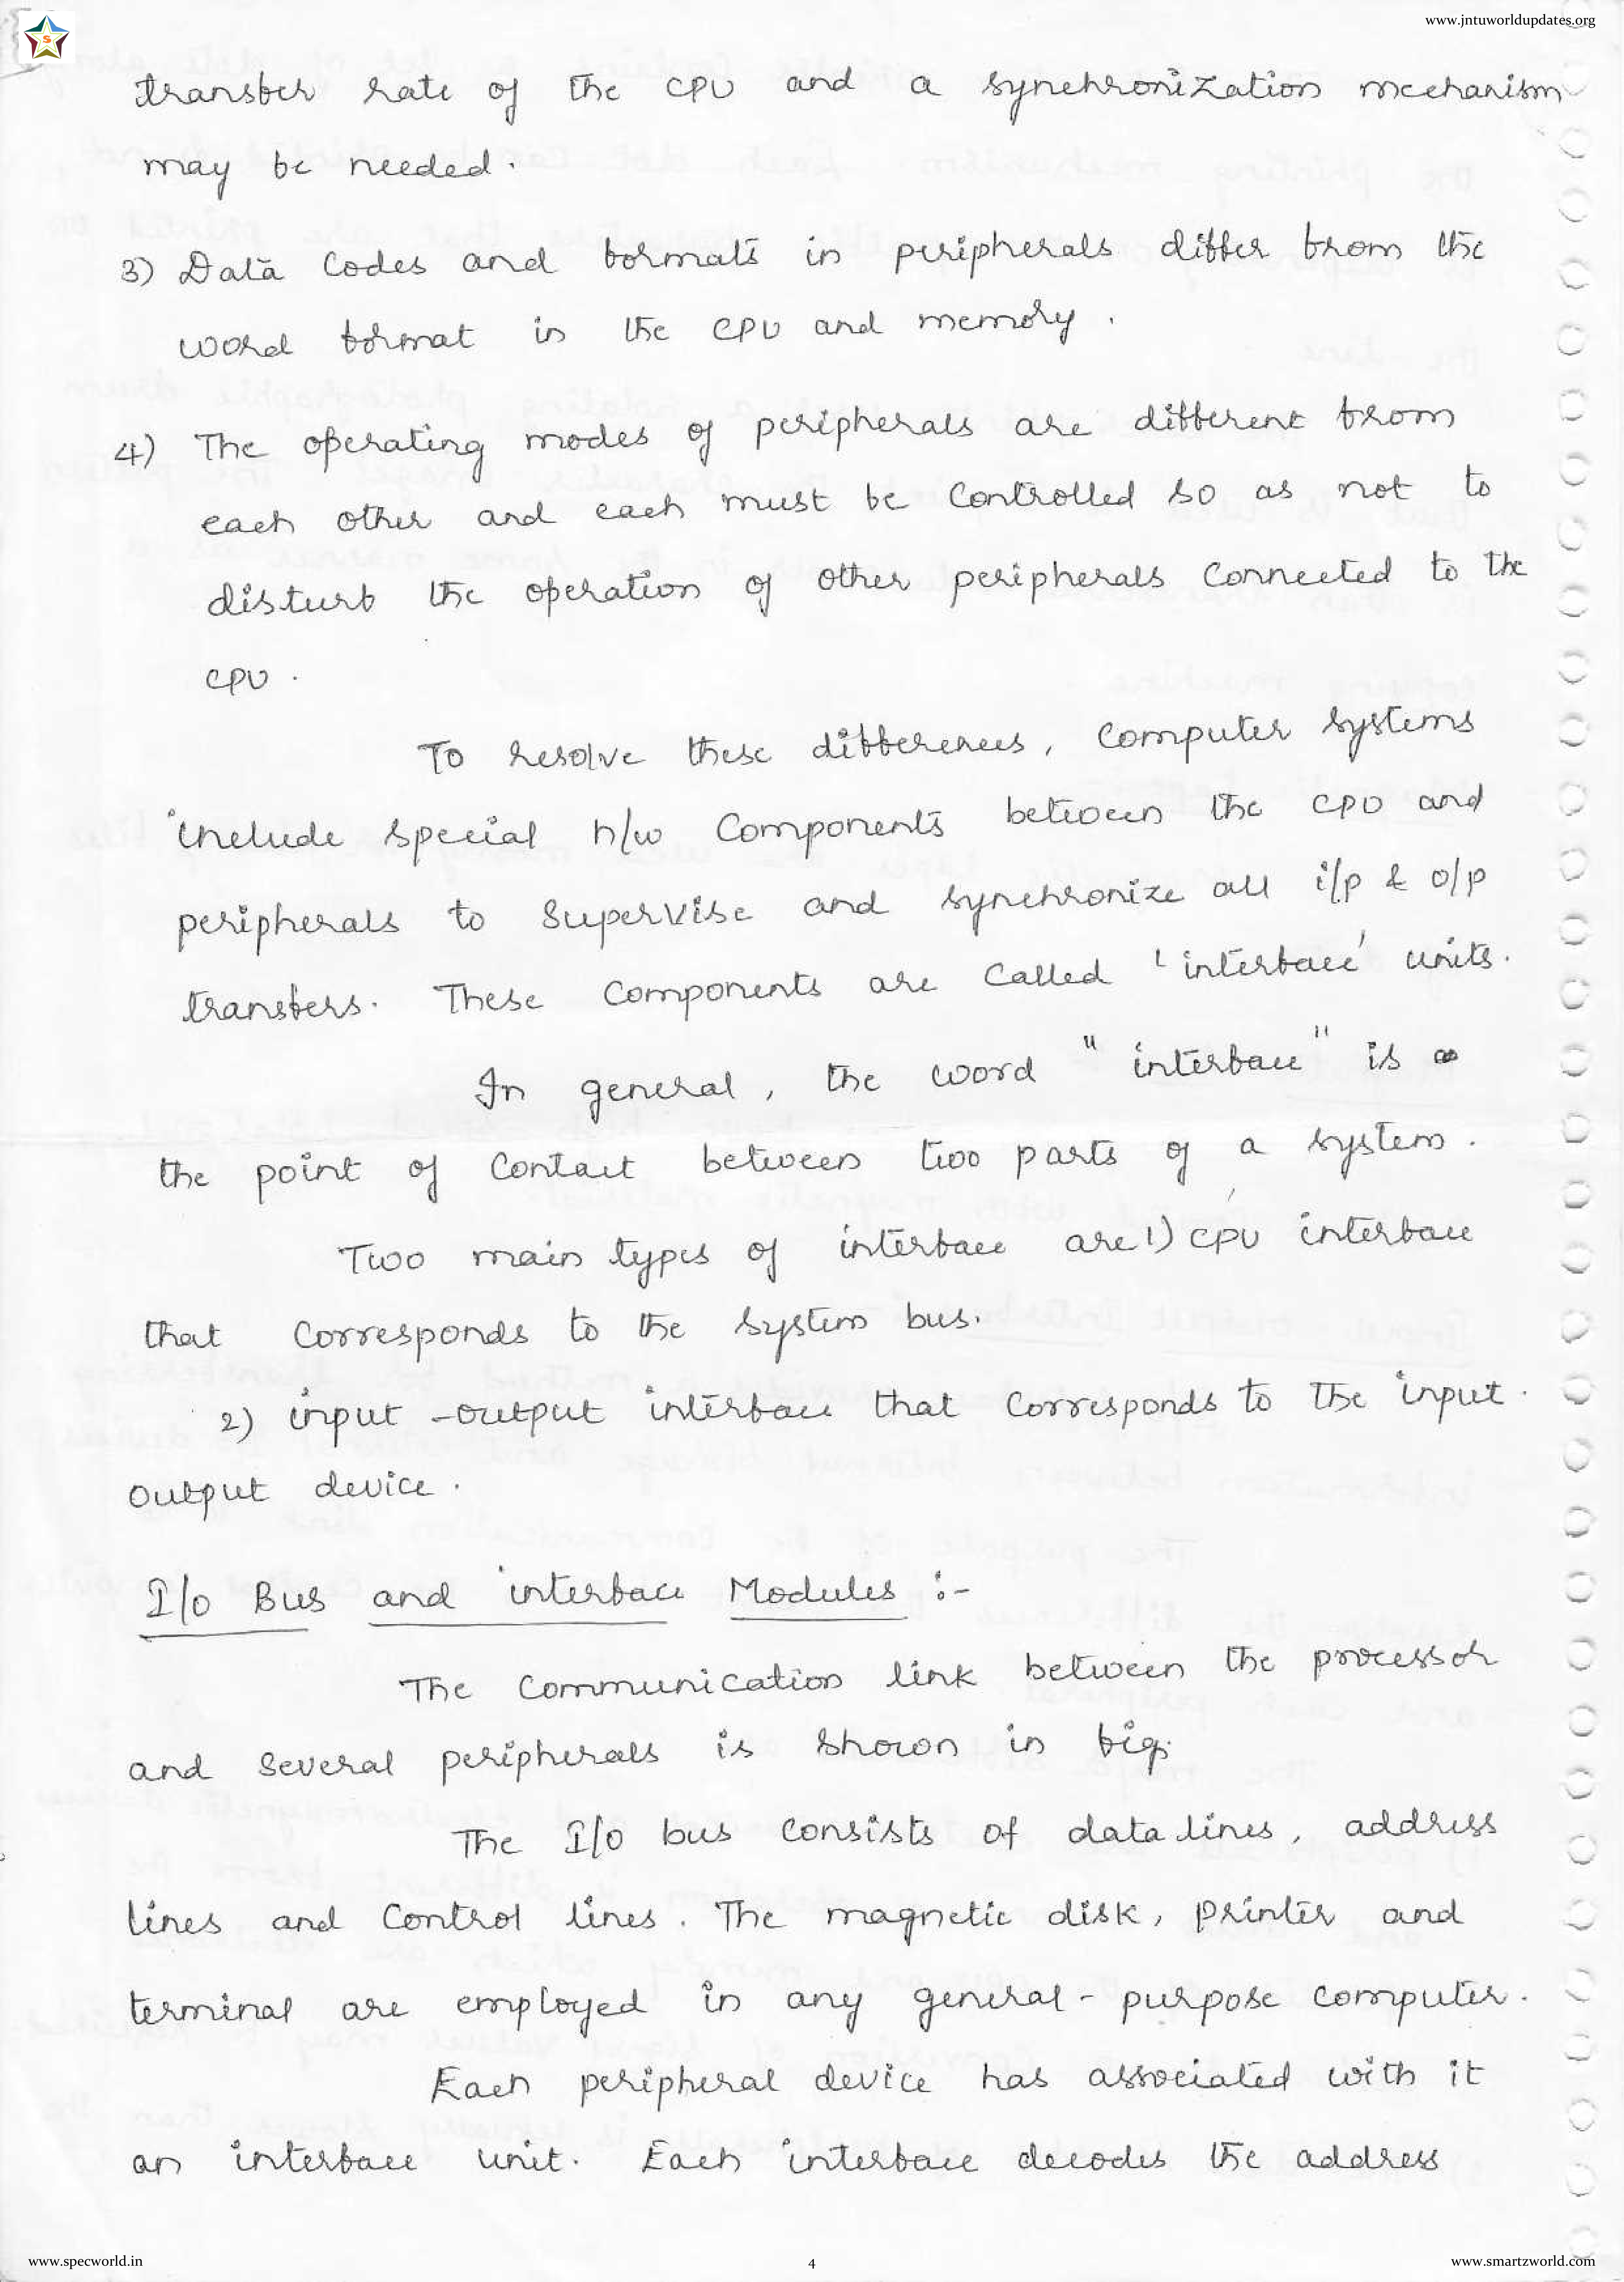 www.jntuworldupdates.org
transfer rate of the CPU and a synchronization mechanism
may be needed.
3) Data Codes and formats in peripherals differ from the
word format in the CPU and memory.
4) The operating modes of peripherals are different from
each other and each must be Controlled so as not to
disturb the operation of other peripherals Connected to the
CPU.
To resolve these differences, Computer systems
include special h/w Components between the CPU and
peripherals to Supervise and synchronize all i/p & o/p
transfers. These Components are Called 'interface' units.
In general, the word "interface" is
the point of Contact between two parts of a system.
Two main types of interface are 1) CPU interface
that Corresponds to the system bus.
2) input-output interface that Corresponds to The input.
output device.
I/o Bus and interface Modules :-
The Communication link between the processor
and Several peripherals is shown in fig.
The I/o bus Consists of data lines, address
lines and Control lines. The magnetic disk, printer and
terminal are employed in any general-purpose computer.
Each peripheral device has associated with it
an interface unit. Each interface decodes the address
www.specworld.in
4
www.smartzworld.com